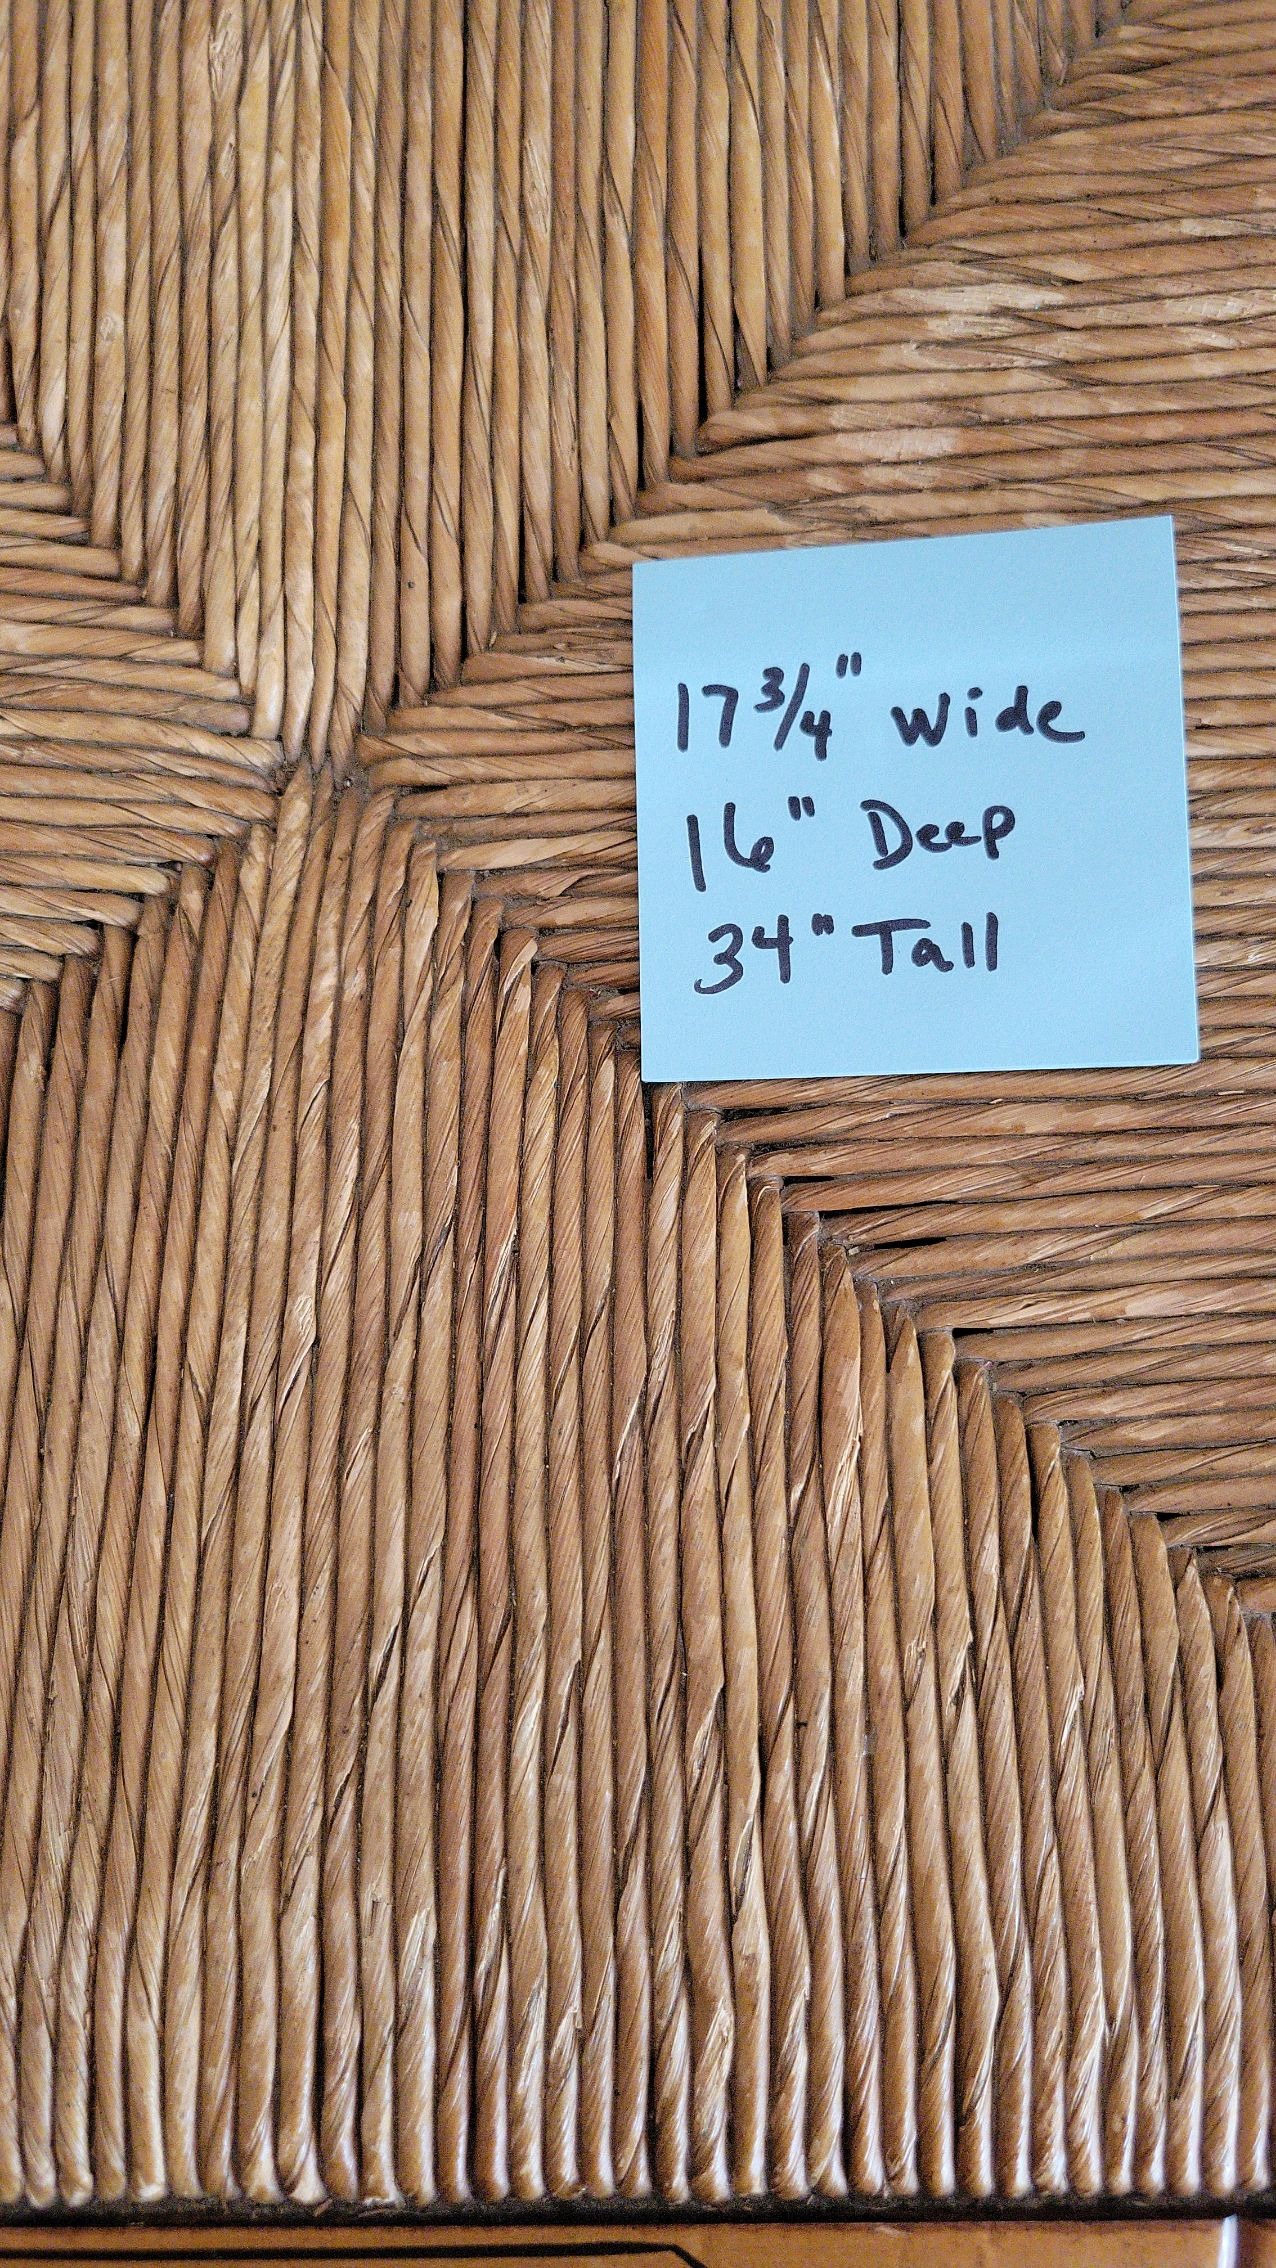 17 3/4" Wide
16" Deep
34" Tall